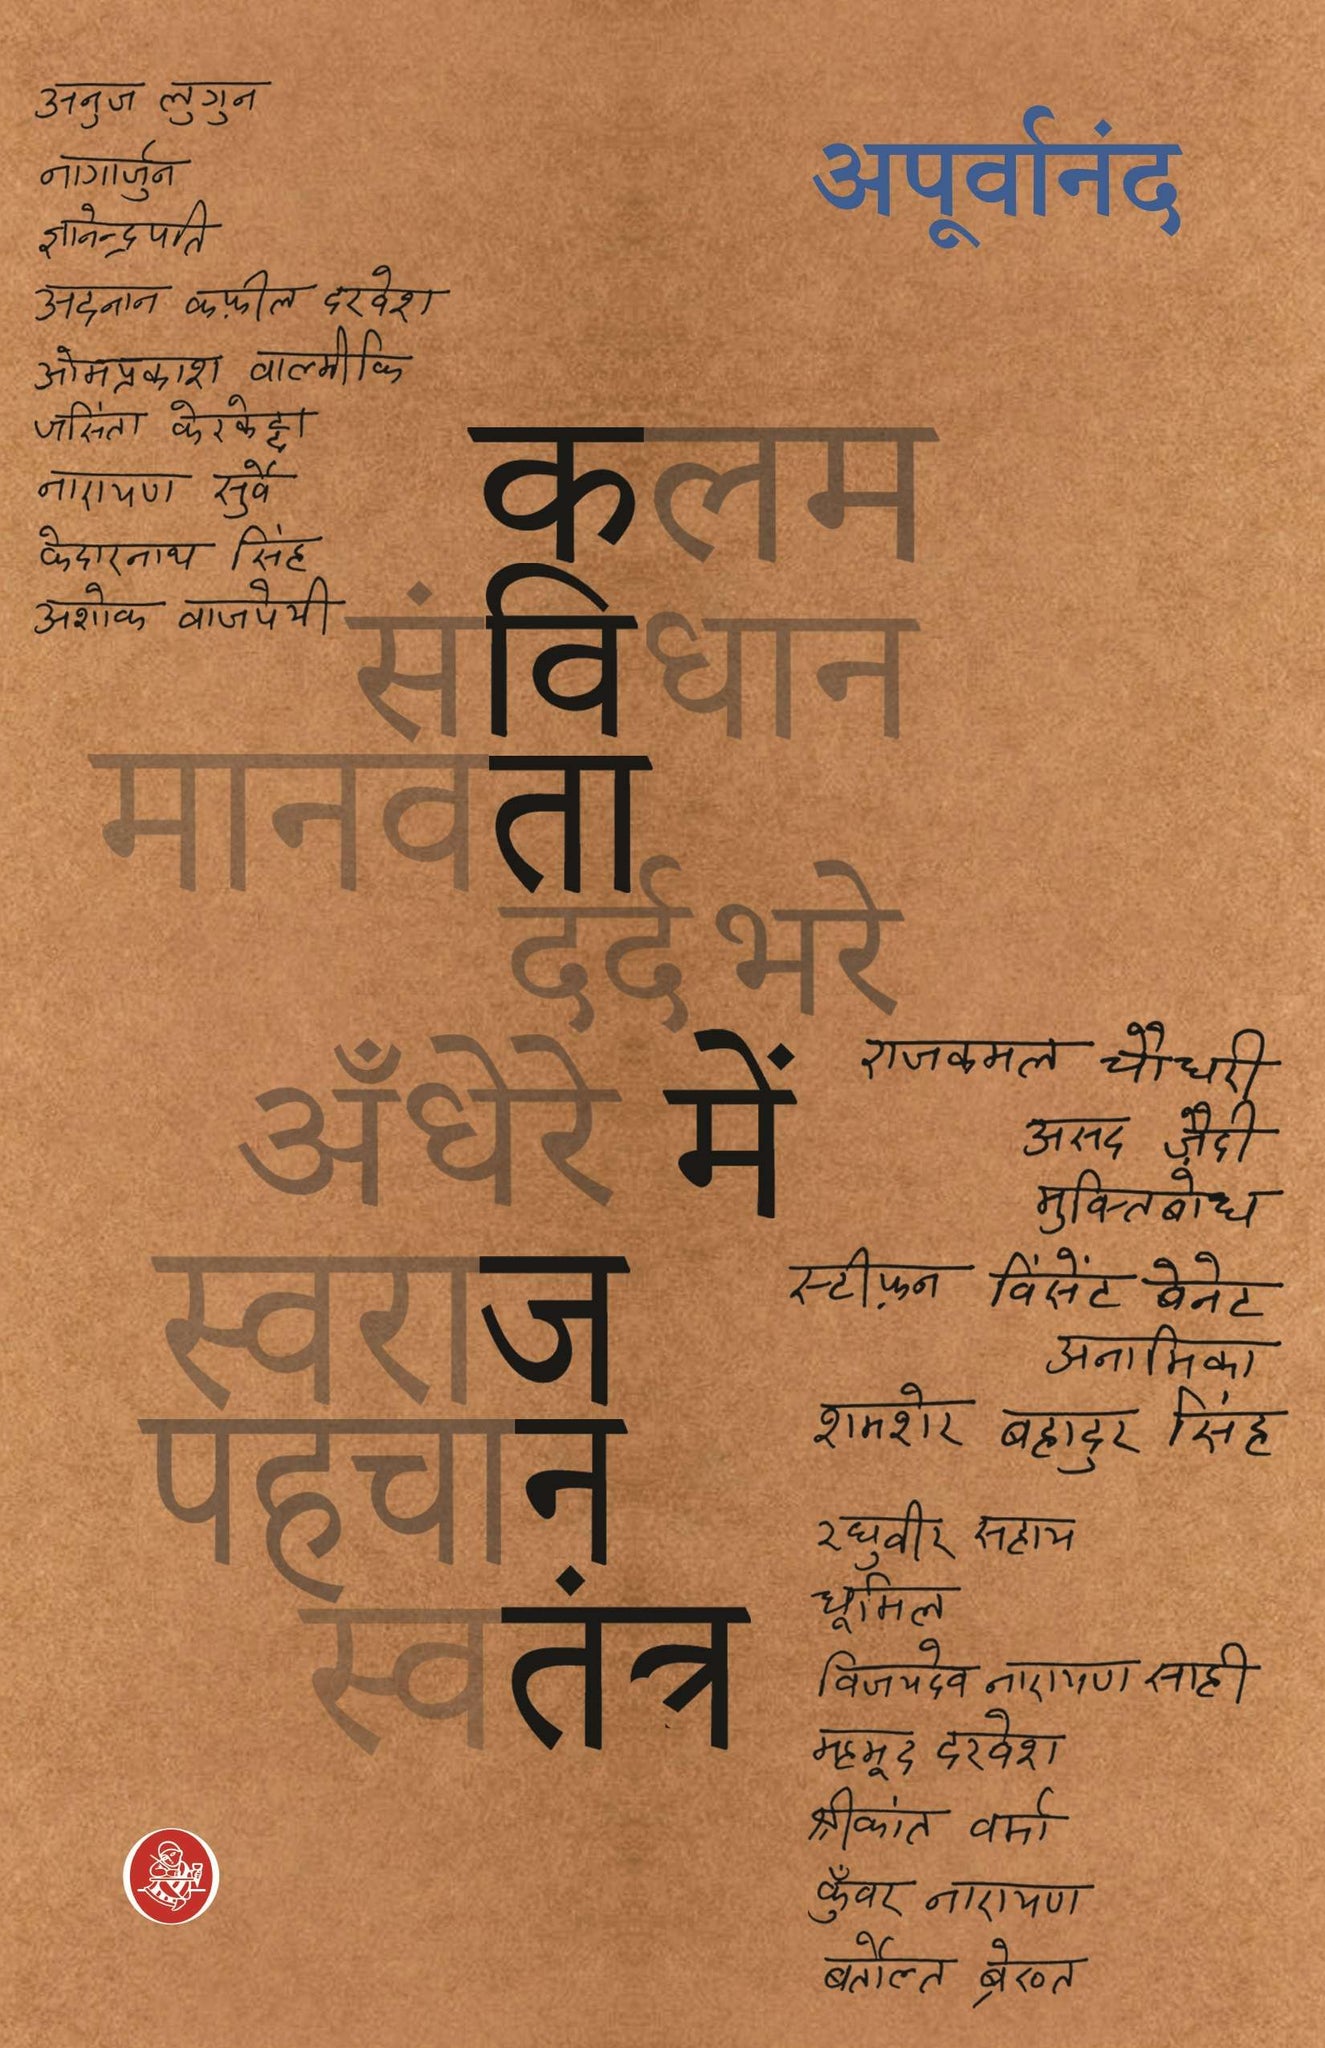 अनुज लुगुन
नागार्जुन
ज्ञानेन्द्रपति
अदनान कफ़ील दरवेश
ओमप्रकाश वाल्मीकि
जसिंता केरकेट्टा
नारायण सुर्वे
केदारनाथ सिंह
अशोक वाजपेयी
अपूर्वानंद
कलम
संविधान
मानवता
दर्द भरे
अँधेरे में
स्वराज
पहचान
स्वतंत्र
राजकमल चौधरी
असद ज़ैदी
मुक्तिबोध
स्टीफ़न विंसेंट बेनेट
अनामिका
शमशेर बहादुर सिंह
रघुवीर सहाय
धूमिल
विजयदेव नारायण साही
महमूद दरवेश
श्रीकांत वर्मा
कुँवर नारायण
बर्तोल्त ब्रेख्त